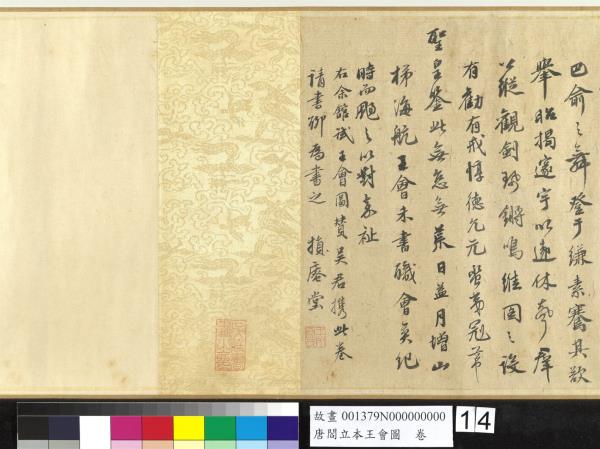 巴俞之舞登于縑素騫其欲
舉昭揭遠宇以遠休
以縱觀劍珮鏘鳴維圖之設
有勸有戒惇德允元蠻夷冠帶
聖皇鑒此無怠無荒日益月增山
梯海航王會未書職會矣紀
時而颺之以對嘉祉
右余館試王會圖贊吳君攜此卷
請書聊為書之 損庵堂
故畫 001379N000000000
唐閻立本王會圖 卷
14